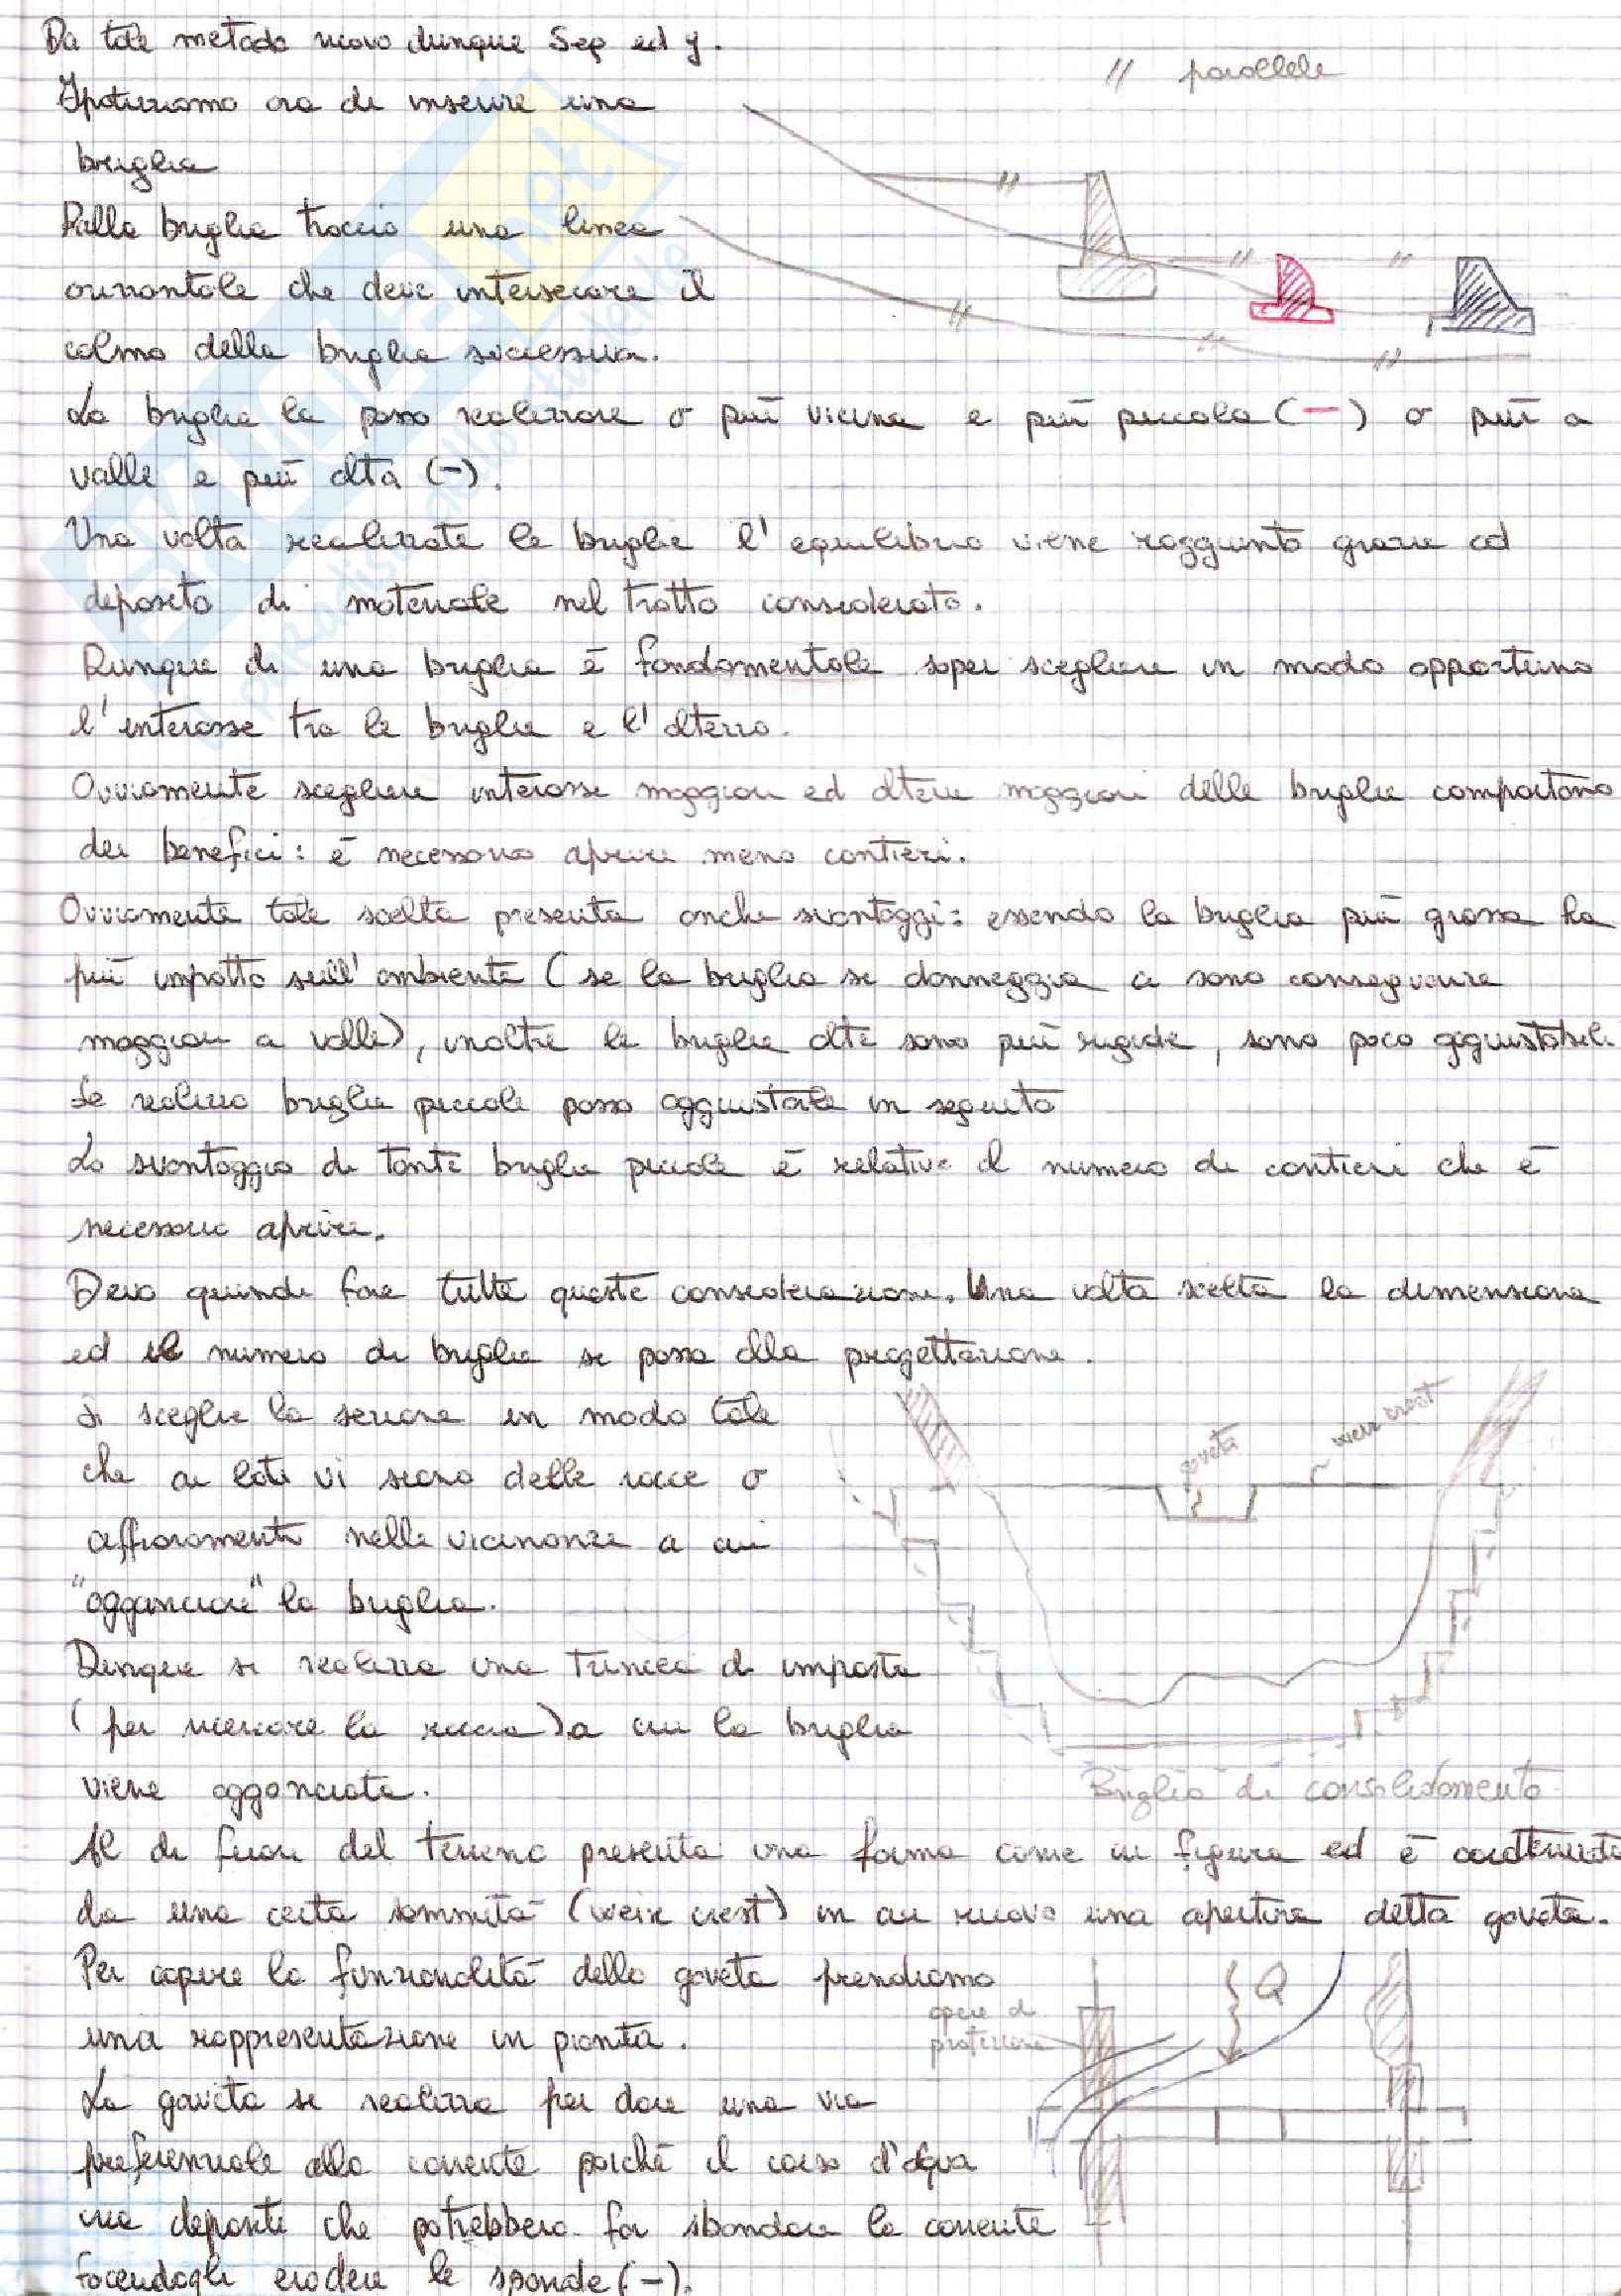 Da tale metodo ricavo dunque Seq ed y.
// parallele
Ipotizziamo ora di inserire una
briglia
Dalla briglia traccio una linea
orizzontale che deve intersecare il
colmo della briglia successiva.
La briglia la posso realizzare o più vicina e più piccola (—) o più a
valle e più alta (—).
Una volta realizzate le briglie l'equilibrio viene raggiunto grazie ad
deposito di materiale nel tratto considerato.
Dunque di una briglia è fondamentale saper scegliere in modo opportuno
l'interasse tra le briglie e l'altezza.
Ovviamente scegliere interassi maggiori ed altezze maggiori delle briglie comportano
dei benefici: è necessario aprire meno cantieri.
Ovviamente tale scelta presenta anche svantaggi: essendo la briglia più grossa ha
più impatto sull'ambiente (se la briglia si danneggia ci sono conseguenze
maggiori a valle), inoltre le briglie alte sono più rigide, sono poco aggiustabili.
Se realizzo briglie piccole posso aggiustarle in seguito
Lo svantaggio di tante briglie piccole è relativo al numero di cantieri che è
necessario aprire.
Devo quindi fare tutte queste considerazioni. Una volta scelta la dimensione
ed il numero di briglie si passa alla progettazione.
Si sceglie la sezione in modo tale
che ai lati vi siano delle rocce o
affioramenti nelle vicinanze a cui
"agganciare" la briglia.
gaveta
weir crest
Dunque si realizza una trincea di imposta
(per ricercare la roccia) a cui la briglia
viene agganciata.
Briglia di consolidamento
Al di fuori del terreno presenta una forma come in figura ed è
da una certa sommità (weir crest) in cui ricavo una apertura detta gaveta.
Per capire la funzionalità della gaveta prendiamo
una rappresentazione in pianta.
opere di
protezione
Q
La gaveta si realizza per dare una via
preferenziale alla corrente poiché il corso d'acqua
crea depositi che potrebbero far sbandare la corrente
facendogli erodere le sponde (—).